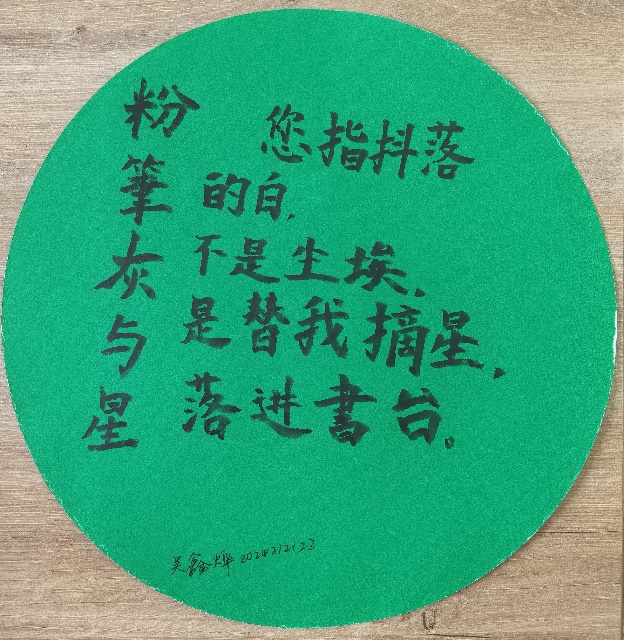 粉筆灰与星
您指抖落
的白,
不是尘埃,
是替我摘星,
落进書台。
吴鑫烨 20241223